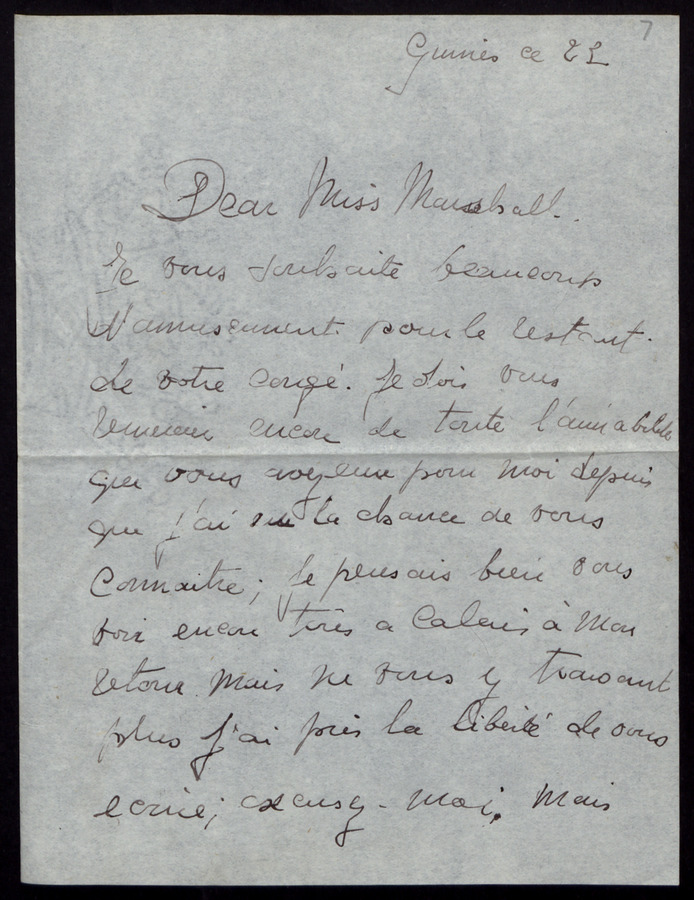 7
Guines ce 22
Dear Miss Marshall.
Je vous souhaite beaucoup
d'amusement pour le restant
de votre congé. Je dois vous
remercier encore de toute l'amiabilité
que vous avez eue pour moi depuis
que j'ai eu la chance de vous
connaitre; Je pensais bien vous
voir encore à Calais à mon
retour mais ne vous y trouvant
plus j'ai pris la liberté de vous
ecrire; excusez-moi. Mais